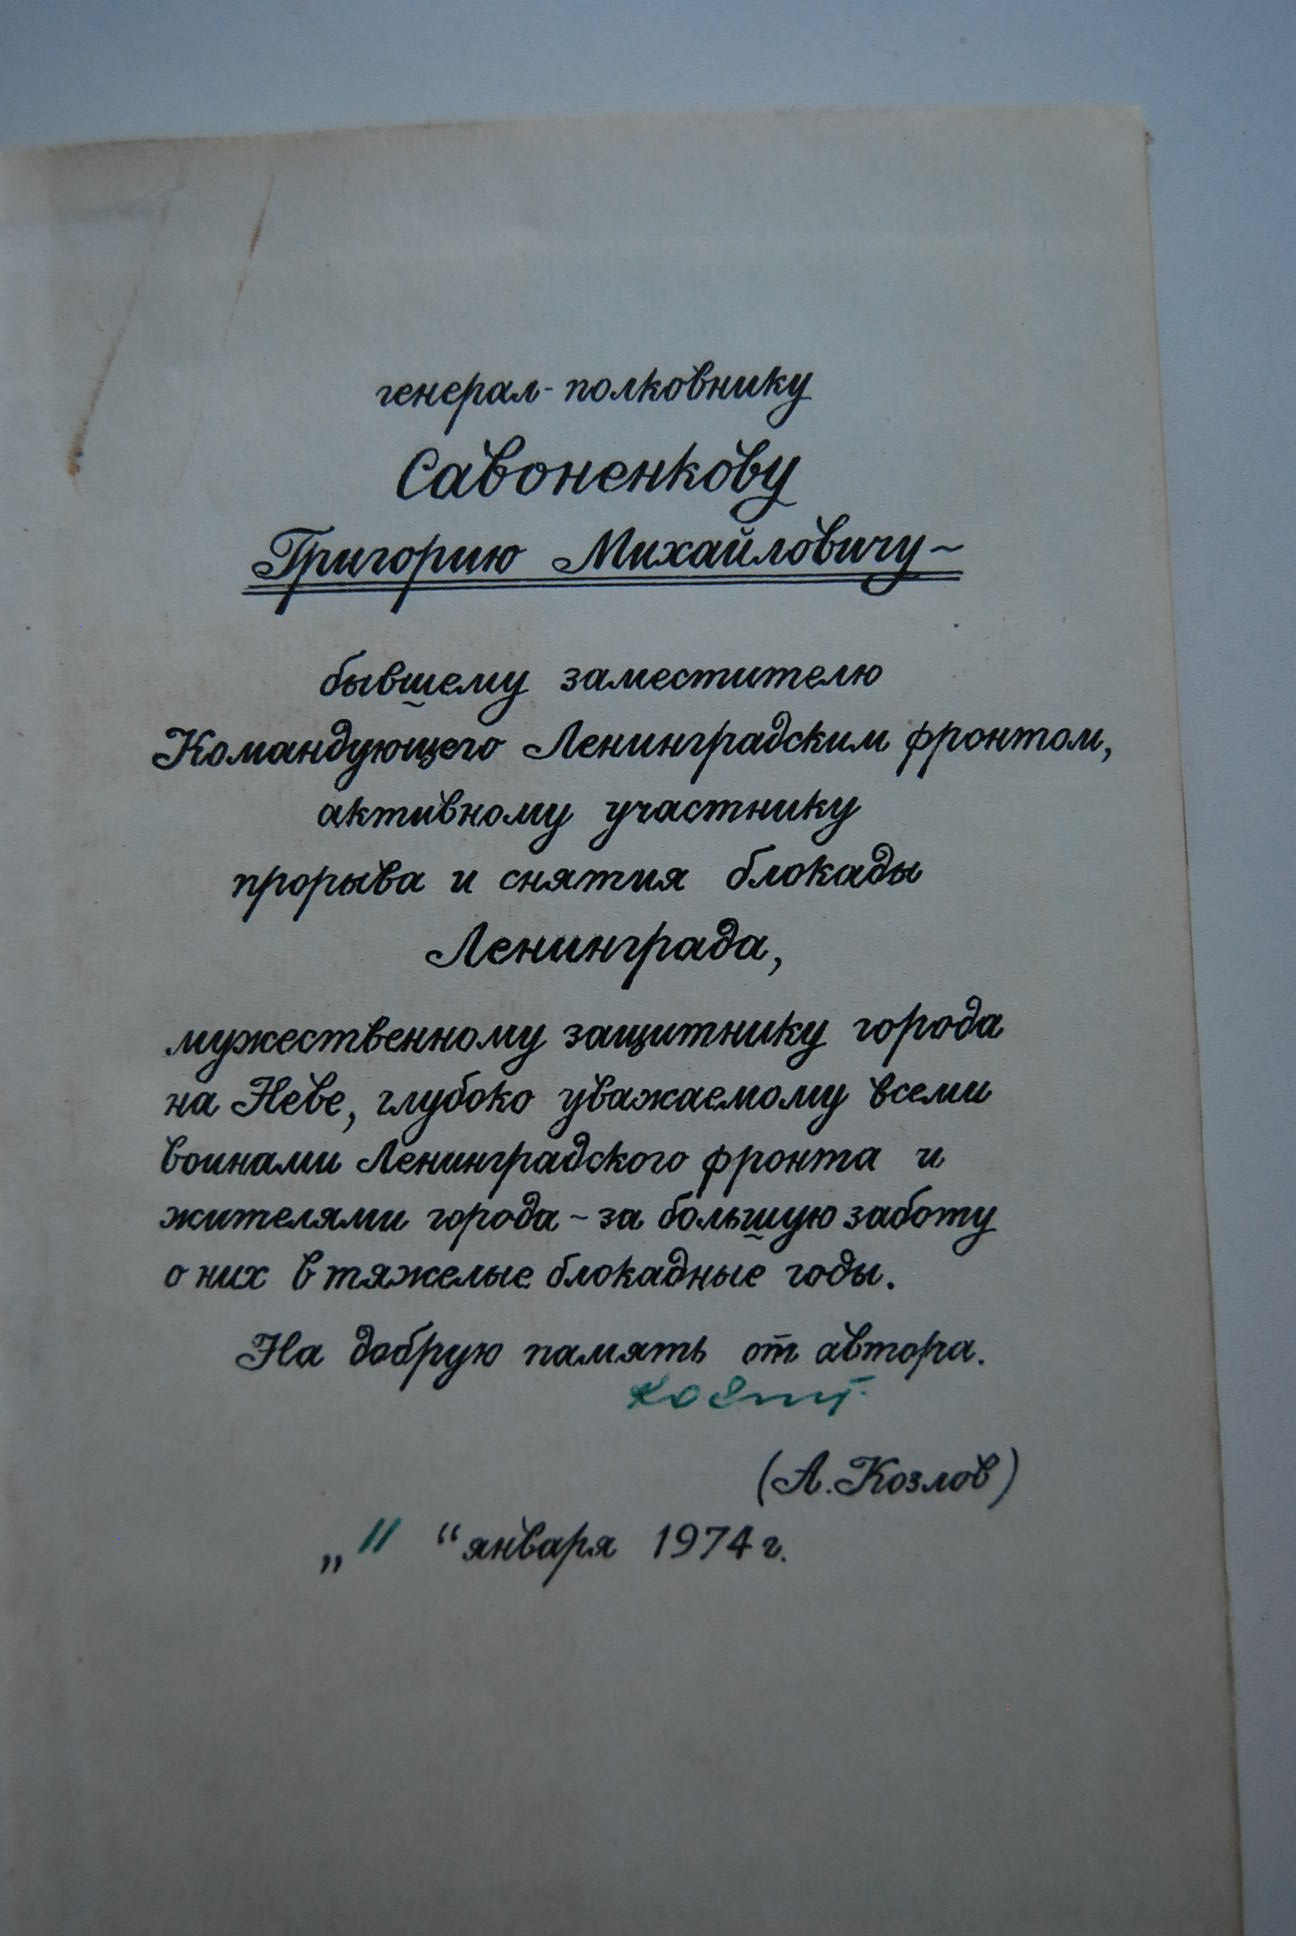 генерал-полковнику
Савоненкову
Григорию Михайловичу –
бывшему заместителю
Командующего Ленинградским фронтом,
активному участнику
прорыва и снятия блокады
Ленинграда,
мужественному защитнику города
на Неве, глубоко уважаемому всеми
воинами Ленинградского фронта и
жителями города – за большую заботу
о них в тяжелые блокадные годы.
На добрую память от автора.
(А. Козлов)
„11“ января 1974 г.